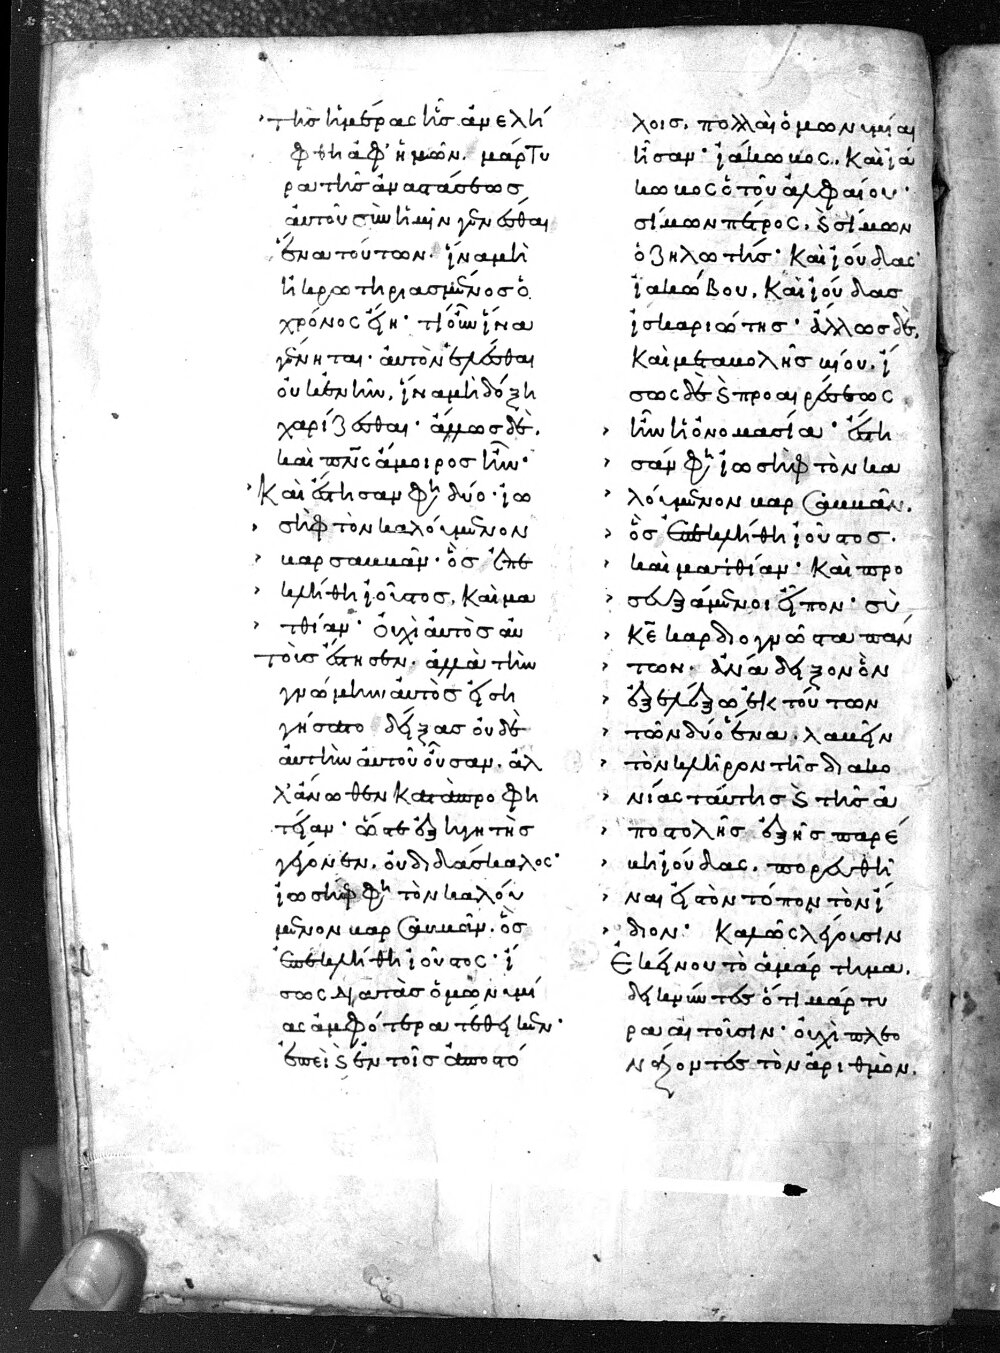 τῆς ἡμέρας ἧς ἀνελή
φθη ἀφ' ἡμῶν. μάρτυ
ρα τῆς ἀναστάσεως
αὐτοῦ σὺν ἡμῖν γενέσθαι
ἕνα τούτων. ἵνα μὴ
ἠκρωτηριασμένος ὁ
χρόνος ἔη. τί οὖν ἵνα
γένηται. αὐτὸν ἑλέσθαι
οὐκ ἐνῆν, ἵνα μὴ δόξη
χαρίζεσθαι. ἄλλως δὲ.
καὶ πνς ἄμοιρος ἦν.
Καὶ ἔστησαν φη δύο. ἰω
σὴφ τὸν καλούμενον
βαρσαββᾶν. ὃς ἐπε
κλήθη ἰοῦστος. καὶ μα
τθίαν. οὐχὶ αὐτὸς αὐ
τοὺς ἔστησεν. ἀλλὰ τὴν
γνώμην αὐτὸς εἰση
γήσατο δείξας οὐδὲ
αὐτὴν αὐτοῦ οὖσαν. ἀλ
λ' ἄνωθεν κατὰ προφη
τείαν. ὥστε ἐξηγητὴς
γέγονεν, οὐ διδάσκαλος.
ἰωσὴφ φη τὸν καλού
μενον βαρσαββᾶν. ὃς
ἐπεκλήθη ἰοῦστος. ἴ
σως διὰ τὰς ὁμωνυμί
ας ἀμφότερα τέθεικεν.
ἐπεὶ καὶ ἐν τοῖς ἀποστό
λοις. πολλαὶ ὁμωνυμίαι
ἦσαν. ἰάκωβος. Καὶ ἰά
κωβος ὁ τοῦ ἀλφαίου.
σίμων πέτρος. καὶ σίμων
ὁ ζηλωτής. Καὶ ἰούδας
ἰακώβου. Καὶ ἰούδας
ἰσκαριώτης. ἄλλως δὲ.
Καὶ μεταβολῆς βίου. ἴ
σως δὲ καὶ προαιρέσεως
ἦν ἡ ὀνομασία. ἔστη
σάν φη ἰωσὴφ τὸν κα
λούμενον βαρσαββᾶν.
ὃς ἐπεκλήθη ἰοῦστος.
καὶ ματθίαν. Καὶ προ
σευξάμενοι εἶπον. σὺ
κε καρδιογνῶστα πάν
των. ἀνάδειξον ὃν
ἐξελέξω ἐκ τούτων
τῶν δύο ἕνα. λαβεῖν
τὸν κλῆρον τῆς διακο
νίας ταύτης καὶ τῆς ἀ
ποστολῆς ἐξ ἧς παρέ
βη ἰούδας. πορευθῆ
ναι εἰς τὸν τόπον τὸν ἴ
διον. Καλῶς λέγουσιν
Ἐκείνου τὸ ἁμάρτημα.
δεικνύντες ὅτι μάρτυ
ρα αἰτοῦσιν. οὐχὶ πλεο
νάζοντες τὸν ἀριθμὸν.